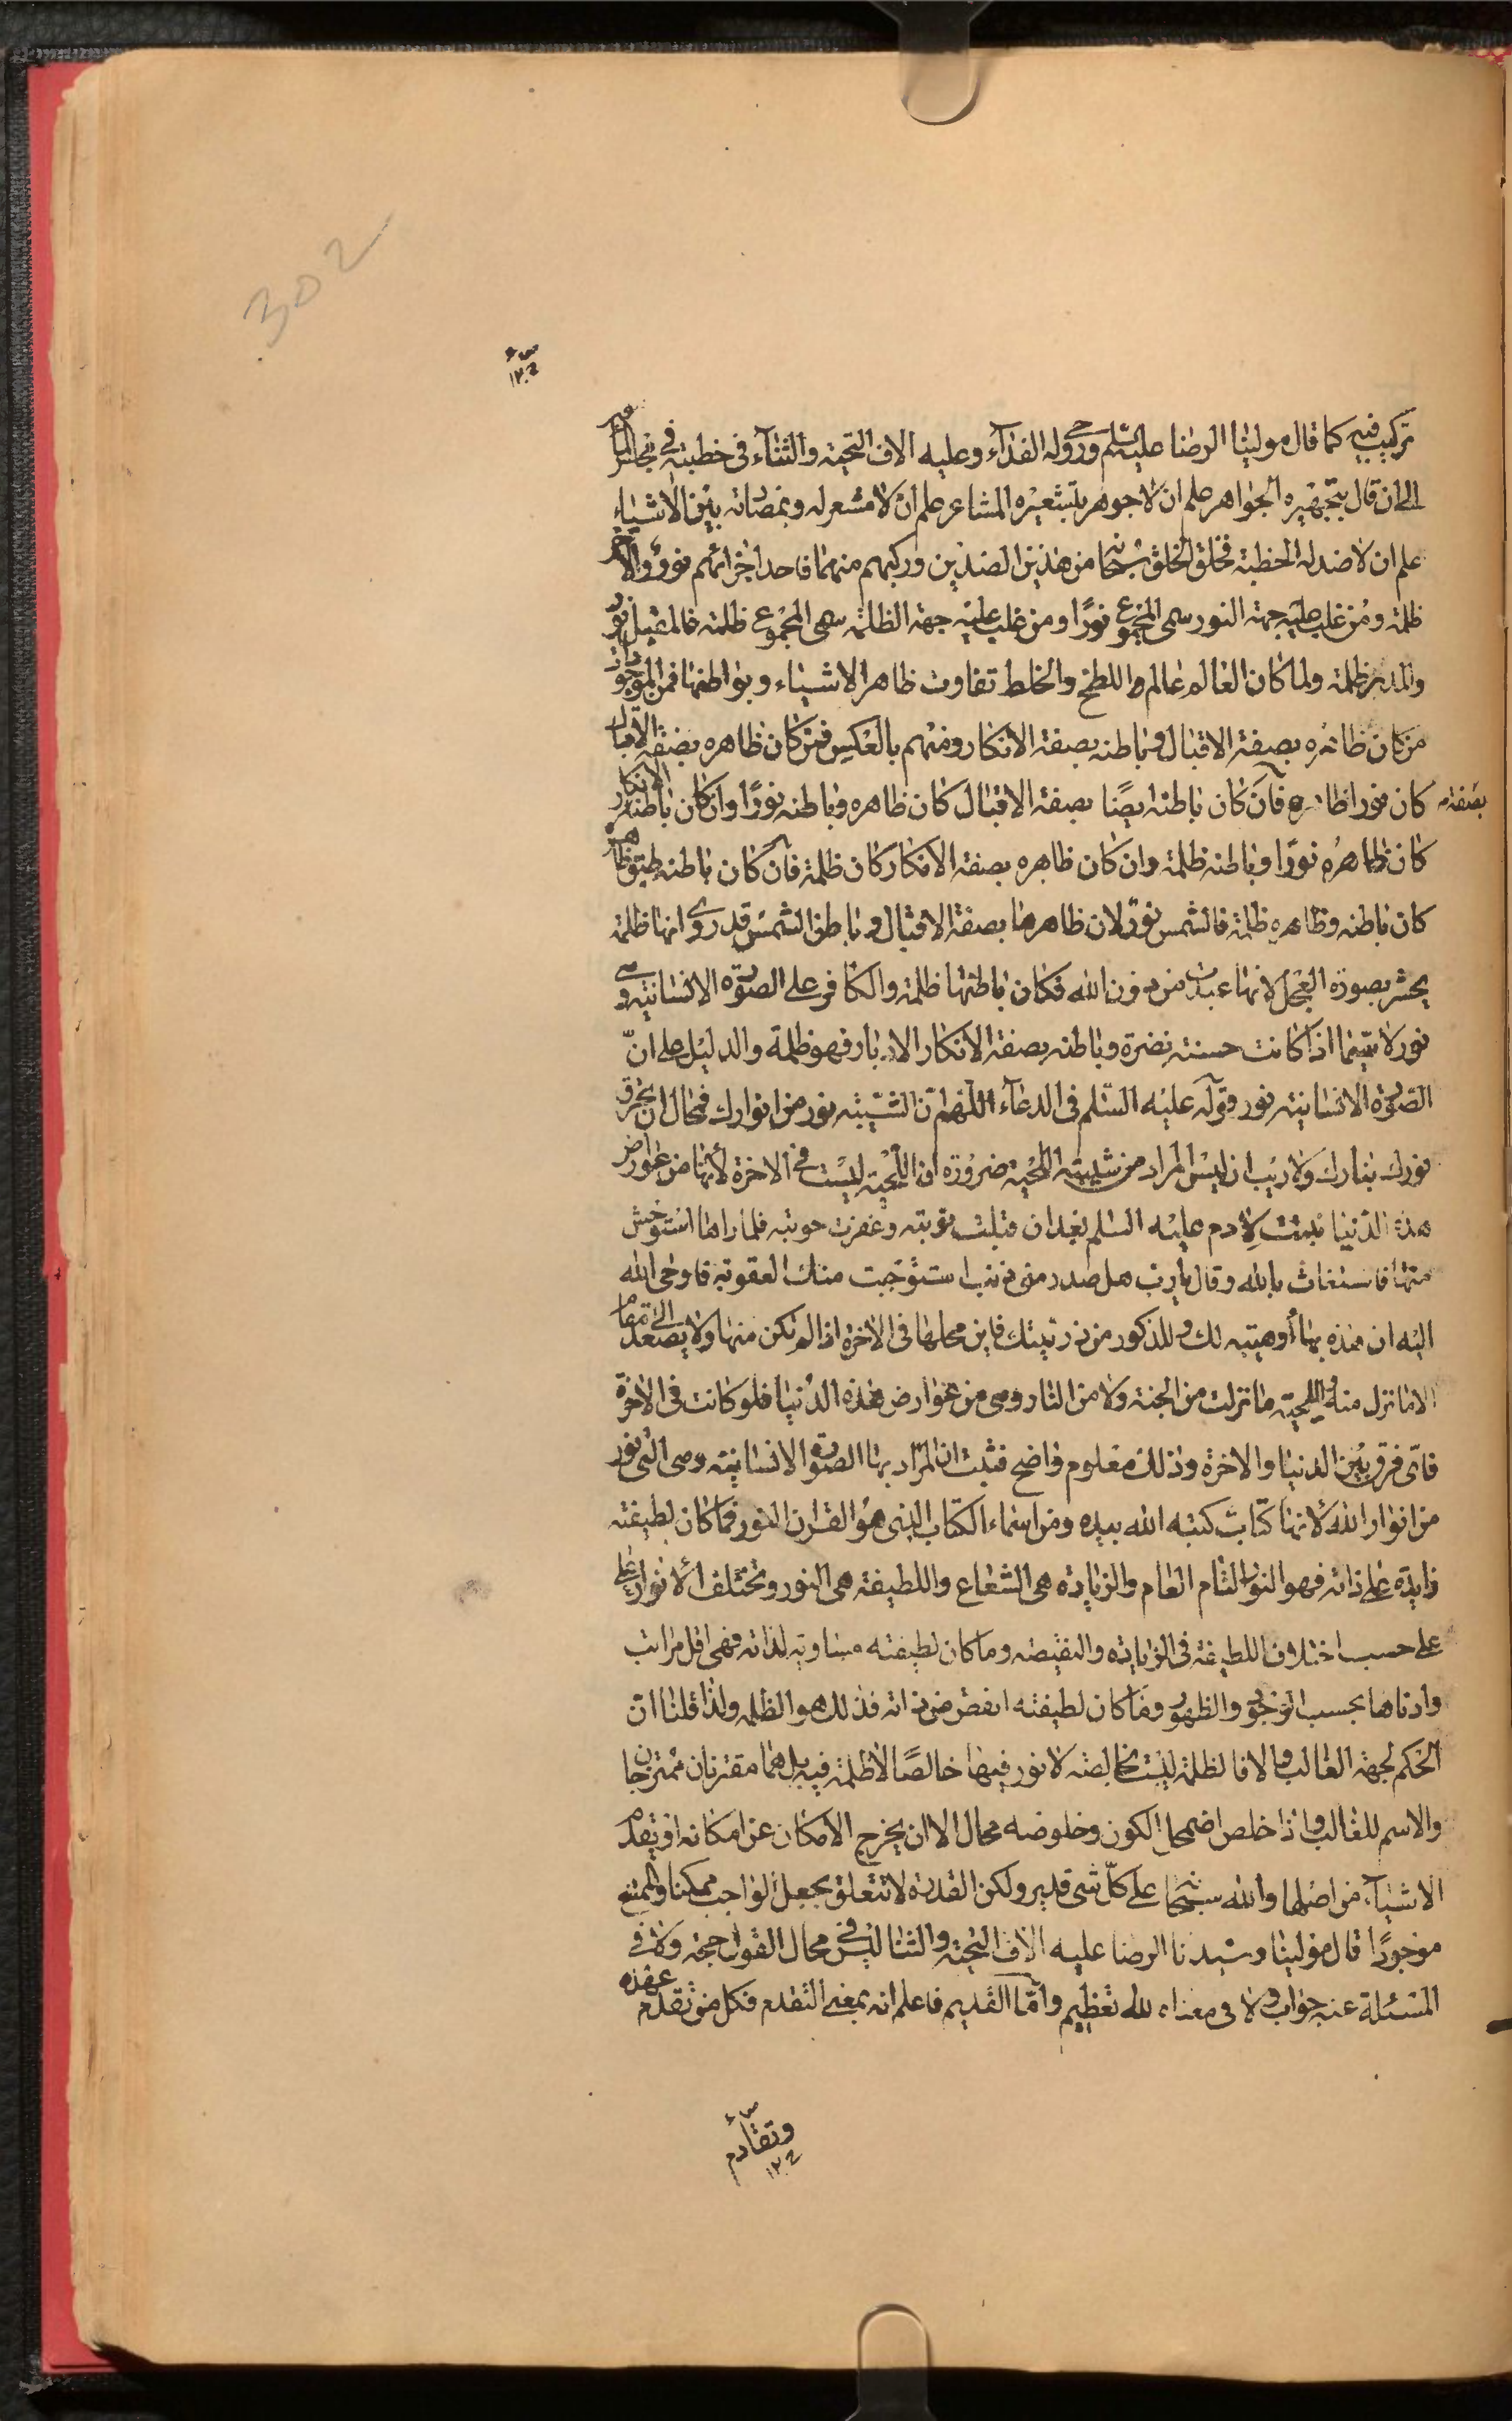 302
تركيب فيه كما قال مولينا الرضا عليه السلم روحي له الفدآء وعليه الاف التحية والثنآء فى خطبته في مجلس المأمون
الى ان قال بتجهيره الجواهر علم ان لا جوهر له بتشعيره المشاعر علم ان لا مشعر له وبمضادته بين الاشياء
علم ان لا ضد له الخطبة فخلق الخلق سبحانه من هذين الضدين وركبهم منهما فاحد اجزائهم نور والاخر
ظلمة ومن غلب عليه جهة النور سمى المجموع نورًا ومن غلب عليه جهة الظلمة سمى المجموع ظلمة فالمقبل نور
والمدبر ظلمة ولما كان العالم عالم اللطخ والخلط تفاوت ظاهر الاشياء وبواطنها فمن الموجودات
من كان ظاهره بصفة الاقبال وباطنه بصفة الانكار ومنهم بالعكس فمن كان ظاهره بصفة الاقبال
كان نورا ظاهره فان كان باطنه ايضًا بصفة الاقبال كان ظاهره وباطنه نورًا وان كان باطنه بصفة الانكار
كان ظاهره نورًا وباطنه ظلمة وان كان ظاهره بصفة الانكار كان ظلمة فان كان باطنه طبق ظاهره
كان باطنه وظاهره ظلمة فالشمس نور لان ظاهرها بصفة الاقبال وباطن الشمس قد روى انها ظلمة
يحشر بصورة العجل لانها عبدت من دون الله فكان باطنها ظلمة والكافر على الصورة الانسانية وهى
نور لا سيما اذا كانت حسنة نضرة وباطنه بصفة الانكار الادبار فهو ظلمة والدليل على انّ
الصورة الانسانية نور قوله عليه السّلم فى الدعآء اللهم انّ الشيبة نور من انوارك فمحال ان تحرق
نورك بنارك ولا ريب ان ليس المراد من شيبته اللحية ضرورة ان اللحية ليست فى الاخرة لأنها من عوارض
هذه الدنيا نبتت لادم عليه السلم بعد ان قبلت توبته وغفرت حوبته فلما راها استوحش
منها فاستغاث بالله وقال يا رب هل صدر منى ذنب استوجبت منك العقوبة فاوحى الله
اليه ان هذه بهآء وهيبة لك وللذكور من ذريتك فاين محلها فى الاخرة اذا لم تكن منها ولا يصعد الى مقام
الا ما نزل منه واللحية ما نزلت من الجنة ولا من النار وهى من عوارض هذه الدنيا فلو كانت فى الاخرة
فاى فرق بين الدنيا والاخرة وذلك معلوم واضح فثبت ان المراد بها الصورة الانسانية وهى التى نور
من انوار الله لانها كتاب كتبه الله بيده ومن اسماء الكتاب الذى هو القران النور فما كان لطيفته
زايدة على ذاته فهو النور التام العام والزيادة هى الشعاع واللطيفة هى النور وتختلف الانوار على
على حسب اختلاف اللطيفة فى الزيادة والنقيصة وما كان لطيفته مساوية لذاته فهى اقل مراتب
وادناها بحسب الوجود والظهور وما كان لطيفته انقص من ذاته فذلك هو الظلمة ولذا قلنا ان
الحكم لجهة الغالب والا فالظلمة ليست بخالصة لا نور فيها خالصًا لا ظلمة فيه بل هما مقترنان ممتزجان
والاسم للغالب واذا خلص اضمحل الكون وخلوصه محال الا ان يخرج الامكان عن امكانه او يتقدم
الاشيآء من اصلها والله سبحانه على كلّ شى قدير ولكن القدرة لا تتعلق بجعل الواجب ممكنا والممتنع
موجودًا قال مولينا وسيدنا الرضا عليه الاف التحية والثنا ليس فى محال القول حجة ولا فى
المسئلة عنه جواب ولا فى معناه لله تعظيم وامّا القديم فاعلم انه بمعنى التقدم فكل من تقدم عهده
وتقادم